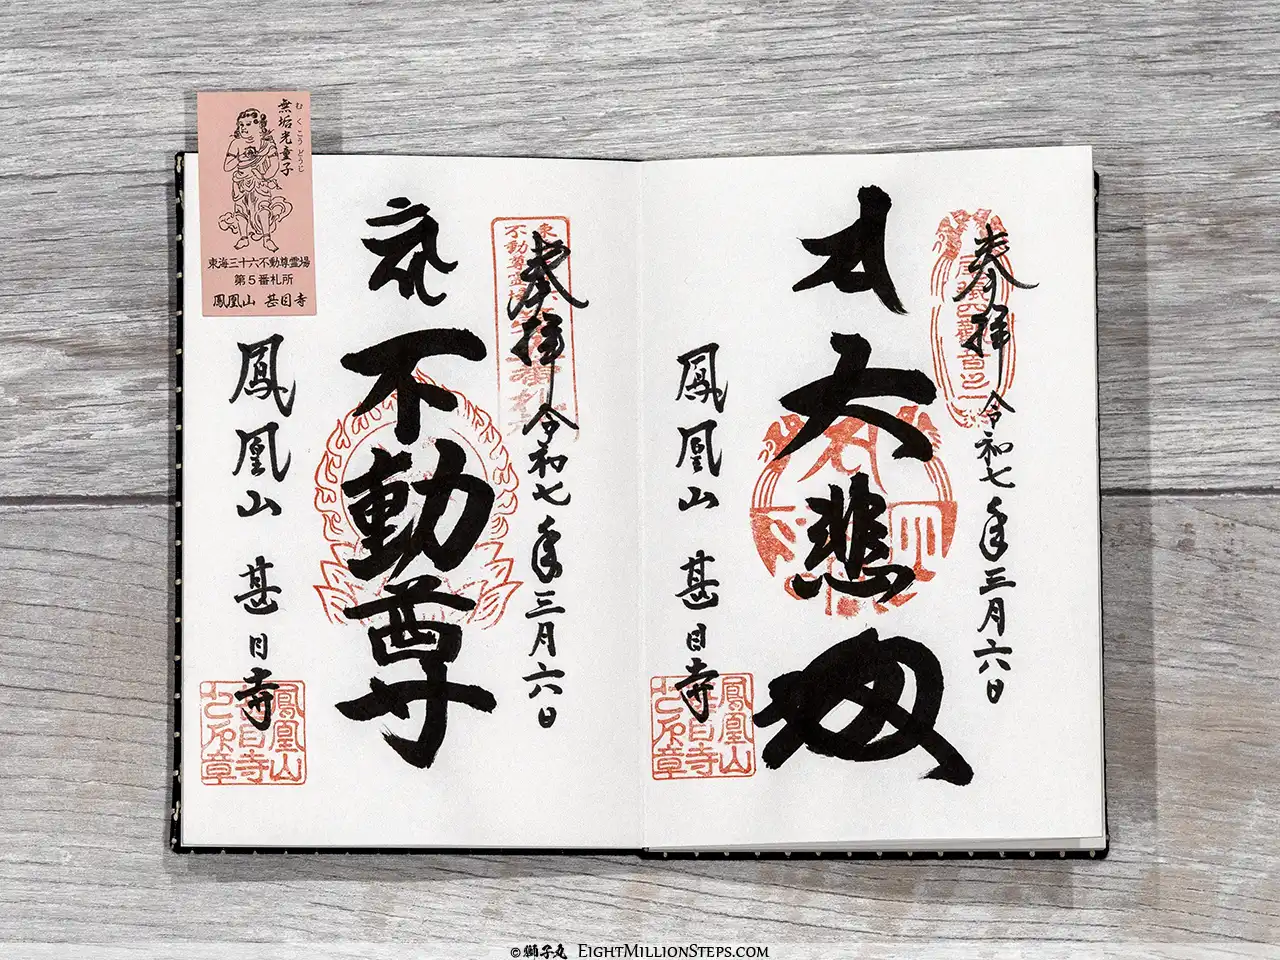 奉拝
令和七年三月六日
大悲殿
鳳凰山 甚目寺
鳳凰山
甚目寺
之印章
奉拝
令和七年三月六日
不動尊
鳳凰山 甚目寺
鳳凰山
甚目寺
之印章
無垢光童子
むくこうどうじ
東海三十六不動尊霊場
第5番札所
鳳凰山 甚目寺
©獅子丸 EightMillionSteps.com